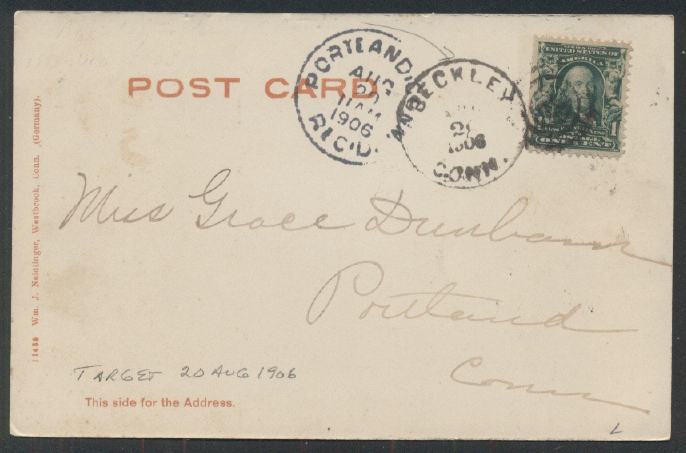 POST CARD
PORTLAND
AUG
20
11 AM
1906
REC'D.
BECKLEY
20
1906
CONN.
UNITED STATES OF
AMERICA
1
Miss Grace Dunham
Portland
Conn
11488 Wm. J. Neidlinger, Westbrook, Conn. (Germany).
TARGET 20 AUG 1906
This side for the Address.
L